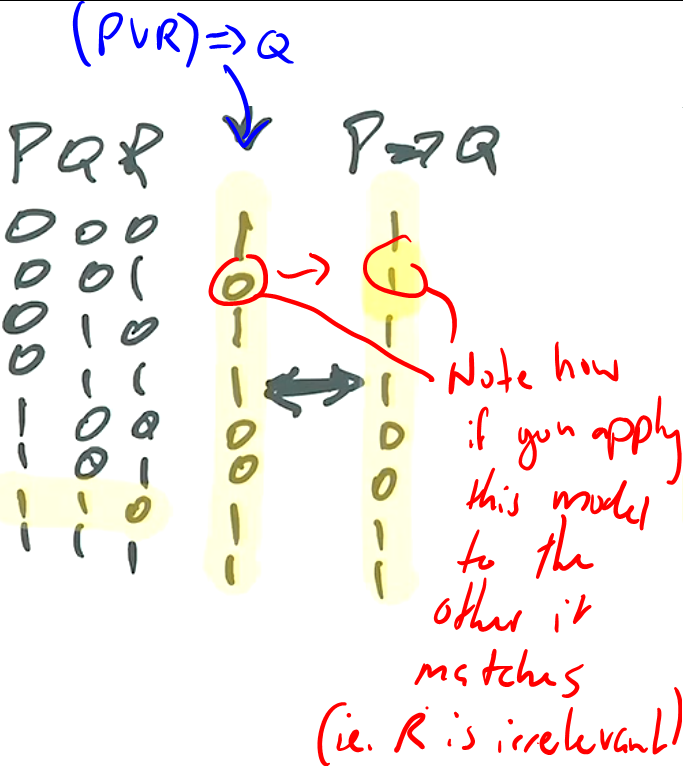 (P∨R)⇒Q
P Q R P⇒Q
0 0 0 1 1
0 0 1 0 → 1
0 1 0 1 1
0 1 1 1 ↔ 1
1 0 0 0 0
1 0 1 0 0
1 1 0 1 1
1 1 1 1 1
Note how
if you apply
this model
to the
other it
matches
(ie. R is irrelevant)